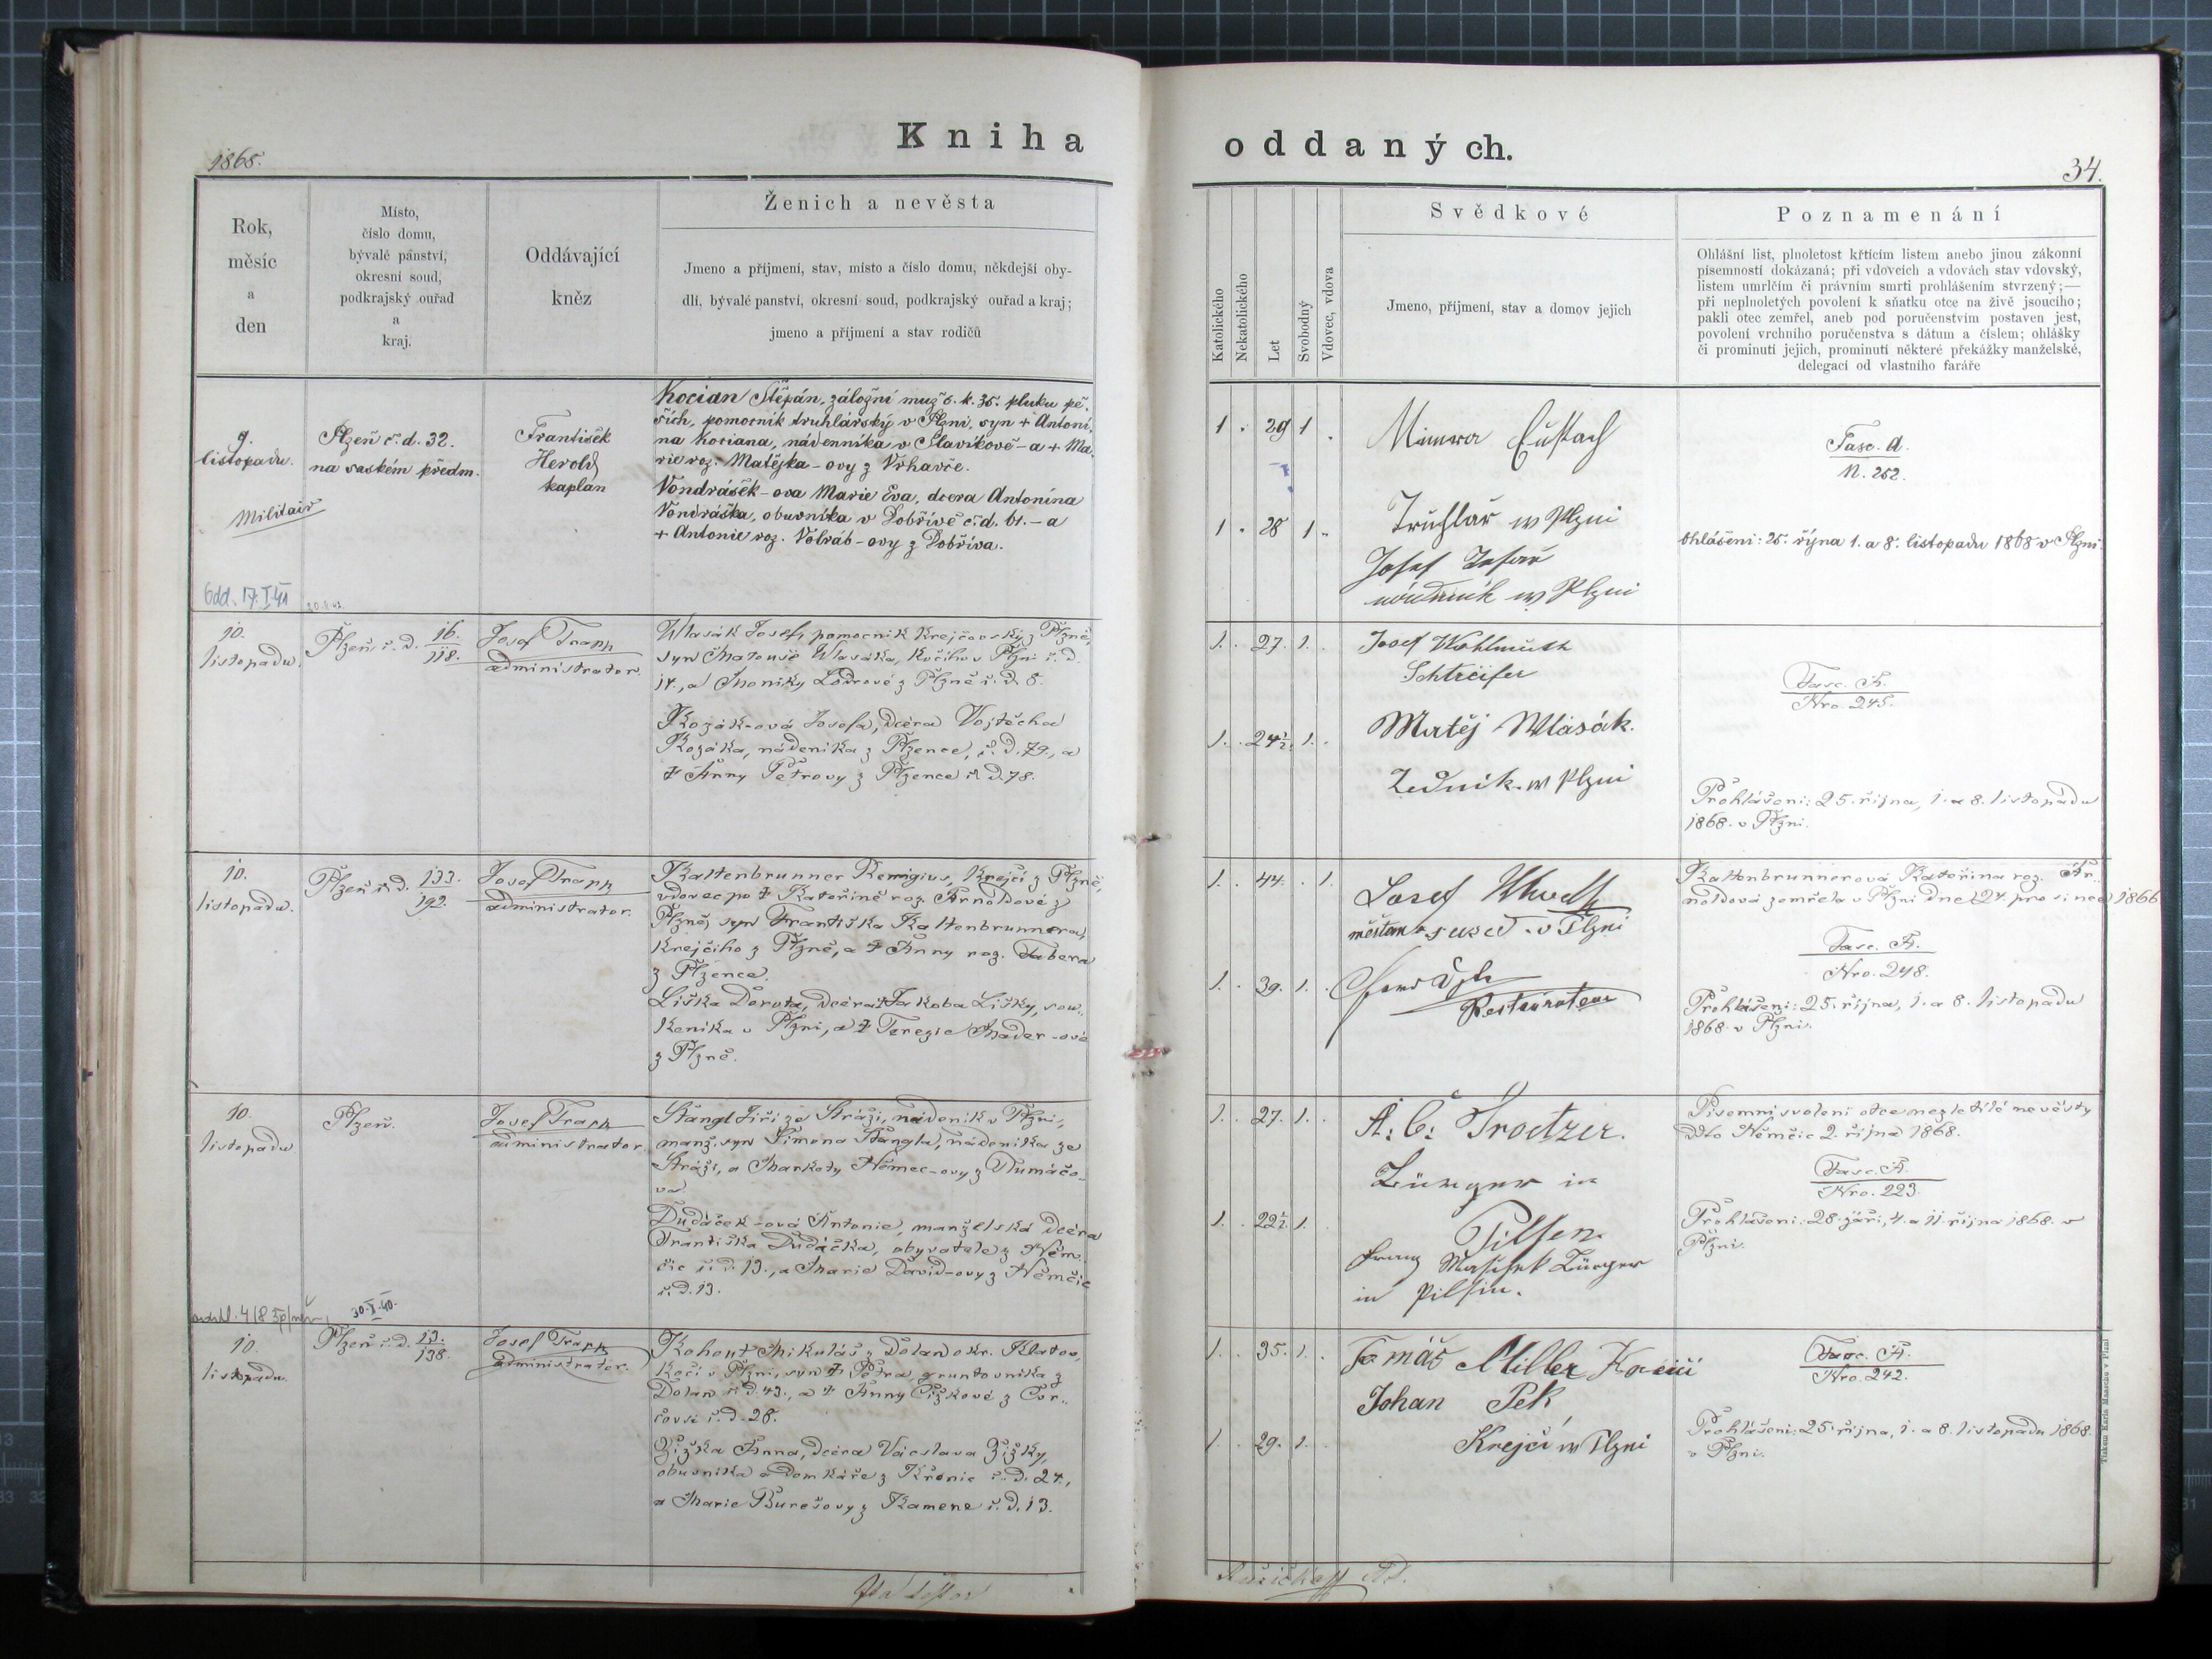 Kniha oddaných.
1868.
34.
Rok,
měsíc
a
den
Místo,
číslo domu,
bývalé panství,
okresní soud,
podkrajský ouřad
a
kraj.
Oddávající
kněz
Ženich a nevěsta
Jmeno a příjmení, stav, místo a číslo domu, někdejší oby-
dlí, bývalé panství, okresní soud, podkrajský ouřad a kraj;
jmeno a příjmení a stav rodičů
Katolického
Nekatolického
Let
Svobodný
Vdovec, vdova
Svědkové
Jmeno, příjmení, stav a domov jejich
Poznamenání
Ohlášní list, plnoletost křtícím listem anebo jinou zákonní
písemností dokázaná; při vdovcích a vdovách stav vdovský,
listem umrlčím či právním smrti prohlášením stvrzený;—
při neplnoletých povolení k sňatku otce na živě jsoucího;
pakli otec zemřel, aneb pod poručenstvím postaven jest,
povolení vrchního poručenstva s dátum a číslem; ohlášky
či prominutí jejich, prominutí některé překážky manželské,
delegací od vlastního faráře
9.
listopadu.
Militair
Plzeň č. d. 32.
na saském předm.
František
Herold
kaplan
Kocian Štěpán, záložní muž c. k. 35. pluku pě-
ších, pomocník truhlářský v Plzni, syn + Antoní-
na Kociana, nádenníka v Slavíkově - a + Ma-
rie roz. Matějka-ovy z Vrhavče.
Vondrášek-ova Marie Eva, dcera Antonína
Vondráška, obuvníka v Dobřívě č. d. 61. - a
+ Antonie roz. Volráb-ovy z Dobříva.
Odd. 17.I 41
1 . 29 1 .
1 . 28 1 .
Eustach
Truhlář w Plzni
Josef
w Plzni
Fasc. A.
N. 252.
Ohlášení: 25. října 1. a 8. listopadu 1868 v Plzni.
10.
listopadu.
Plzeň č. d. 16.
118.
Josef Trapp
administrator.
Wlasák Josef, pomocník Krejčovský z Plzně,
syn Matouše Wlasáka, Kočího v Plzni č. d.
14., a Moniky Lodrové z Plzně č. d. 8.
Kozák-ová Josefa, dcéra Vojtěcha
Kozáka, nádeníka z Plzence, č. d. 79., a
+ Anny Petrovy z Plzence č. d. 78.
1. . 27. 1. .
1. . 24½. 1. .
Josef Wohlmuth
Matěj Wlasák.
Zedník w Plzni
Fasc. A.
Nro. 245.
Prohlášení: 25. října, 1. a 8. listopadu
1868. v Plzni.
10.
listopadu.
Plzeň č. d. 133.
192.
Josef Trapp
administrator.
Kaltenbrunner Remigius, Krejčí z Plzně,
vdovec po + Kateřině roz. Arnoldové z
Plzně, syn Františka Kaltenbrunnera,
Krejčího z Plzně, a + Anny roz. Tabera
z Plzence.
Liška Dorota, dcéra + Jakoba Lišky, sou-
keníka v Plzni, a + Terezie Mader-ové
z Plzně.
1. . 44. . 1.
1. . 39. 1. .
Josef
měštan a soused v Plzni
Restaurateur
Kaltenbrunnerová Kateřina roz. Ar-
noldová zemřela v Plzni dne 24. prosince 1866.
Fasc. A.
Nro. 248.
Prohlášení: 25. října, 1. a 8. listopadu
1868. v Plzni.
10.
listopadu
Plzeň.
Josef Trapp
administrator
Stangl Jiří ze Stráži, nádeník v Plzni,
manž. syn Šimona Stangla, nádeníka ze
Stráži, a Markety Němec-ovy z Tlumačo-
va.
Dudáček-ová Antonie, manželská dcéra
Františka Dudáčka, obyvatele z Něm-
čic č. d. 13., a Marie David-ovy z Němčic
č. d. 13.
30.I.40.
1. . 27. 1. .
1. . 22½. 1. .
A. C. Troetzer.
Bürger in
Pilsen.
Franz Bürger
in Pilsen.
Písemní svolení otce nezletilé nevěsty
ddto Němčic 2. října 1868.
Fasc. A.
Nro. 223.
Prohlášení: 28. září, 4. a 11. října 1868. v
Plzni.
10.
listopadu.
Plzeň č. d. 13.
138.
Josef Trapp
administrator.
Kohout Mikuláš z Dolan okr. Klatov,
Kočí v Plzni, syn + Petra, gruntovníka z
Dolan č. d. 43., a + Anny Čížkové z Svr-
čovsi č. d. 28.
Žižka Anna, dcéra Václava Žižky,
obuvníka a domkáře z Křenic č. d. 24.,
a Marie Burešovy z Kamene č. d. 13.
1. . 35. 1. .
1. . 29. 1. .
Tomáš Miller
Johan Pek,
Krejčí w Plzni
Fasc. A.
Nro. 242.
Prohlášení: 25. října, 1. a 8. listopadu 1868.
v Plzni.
Tiskem Karla Maascha v Plzni